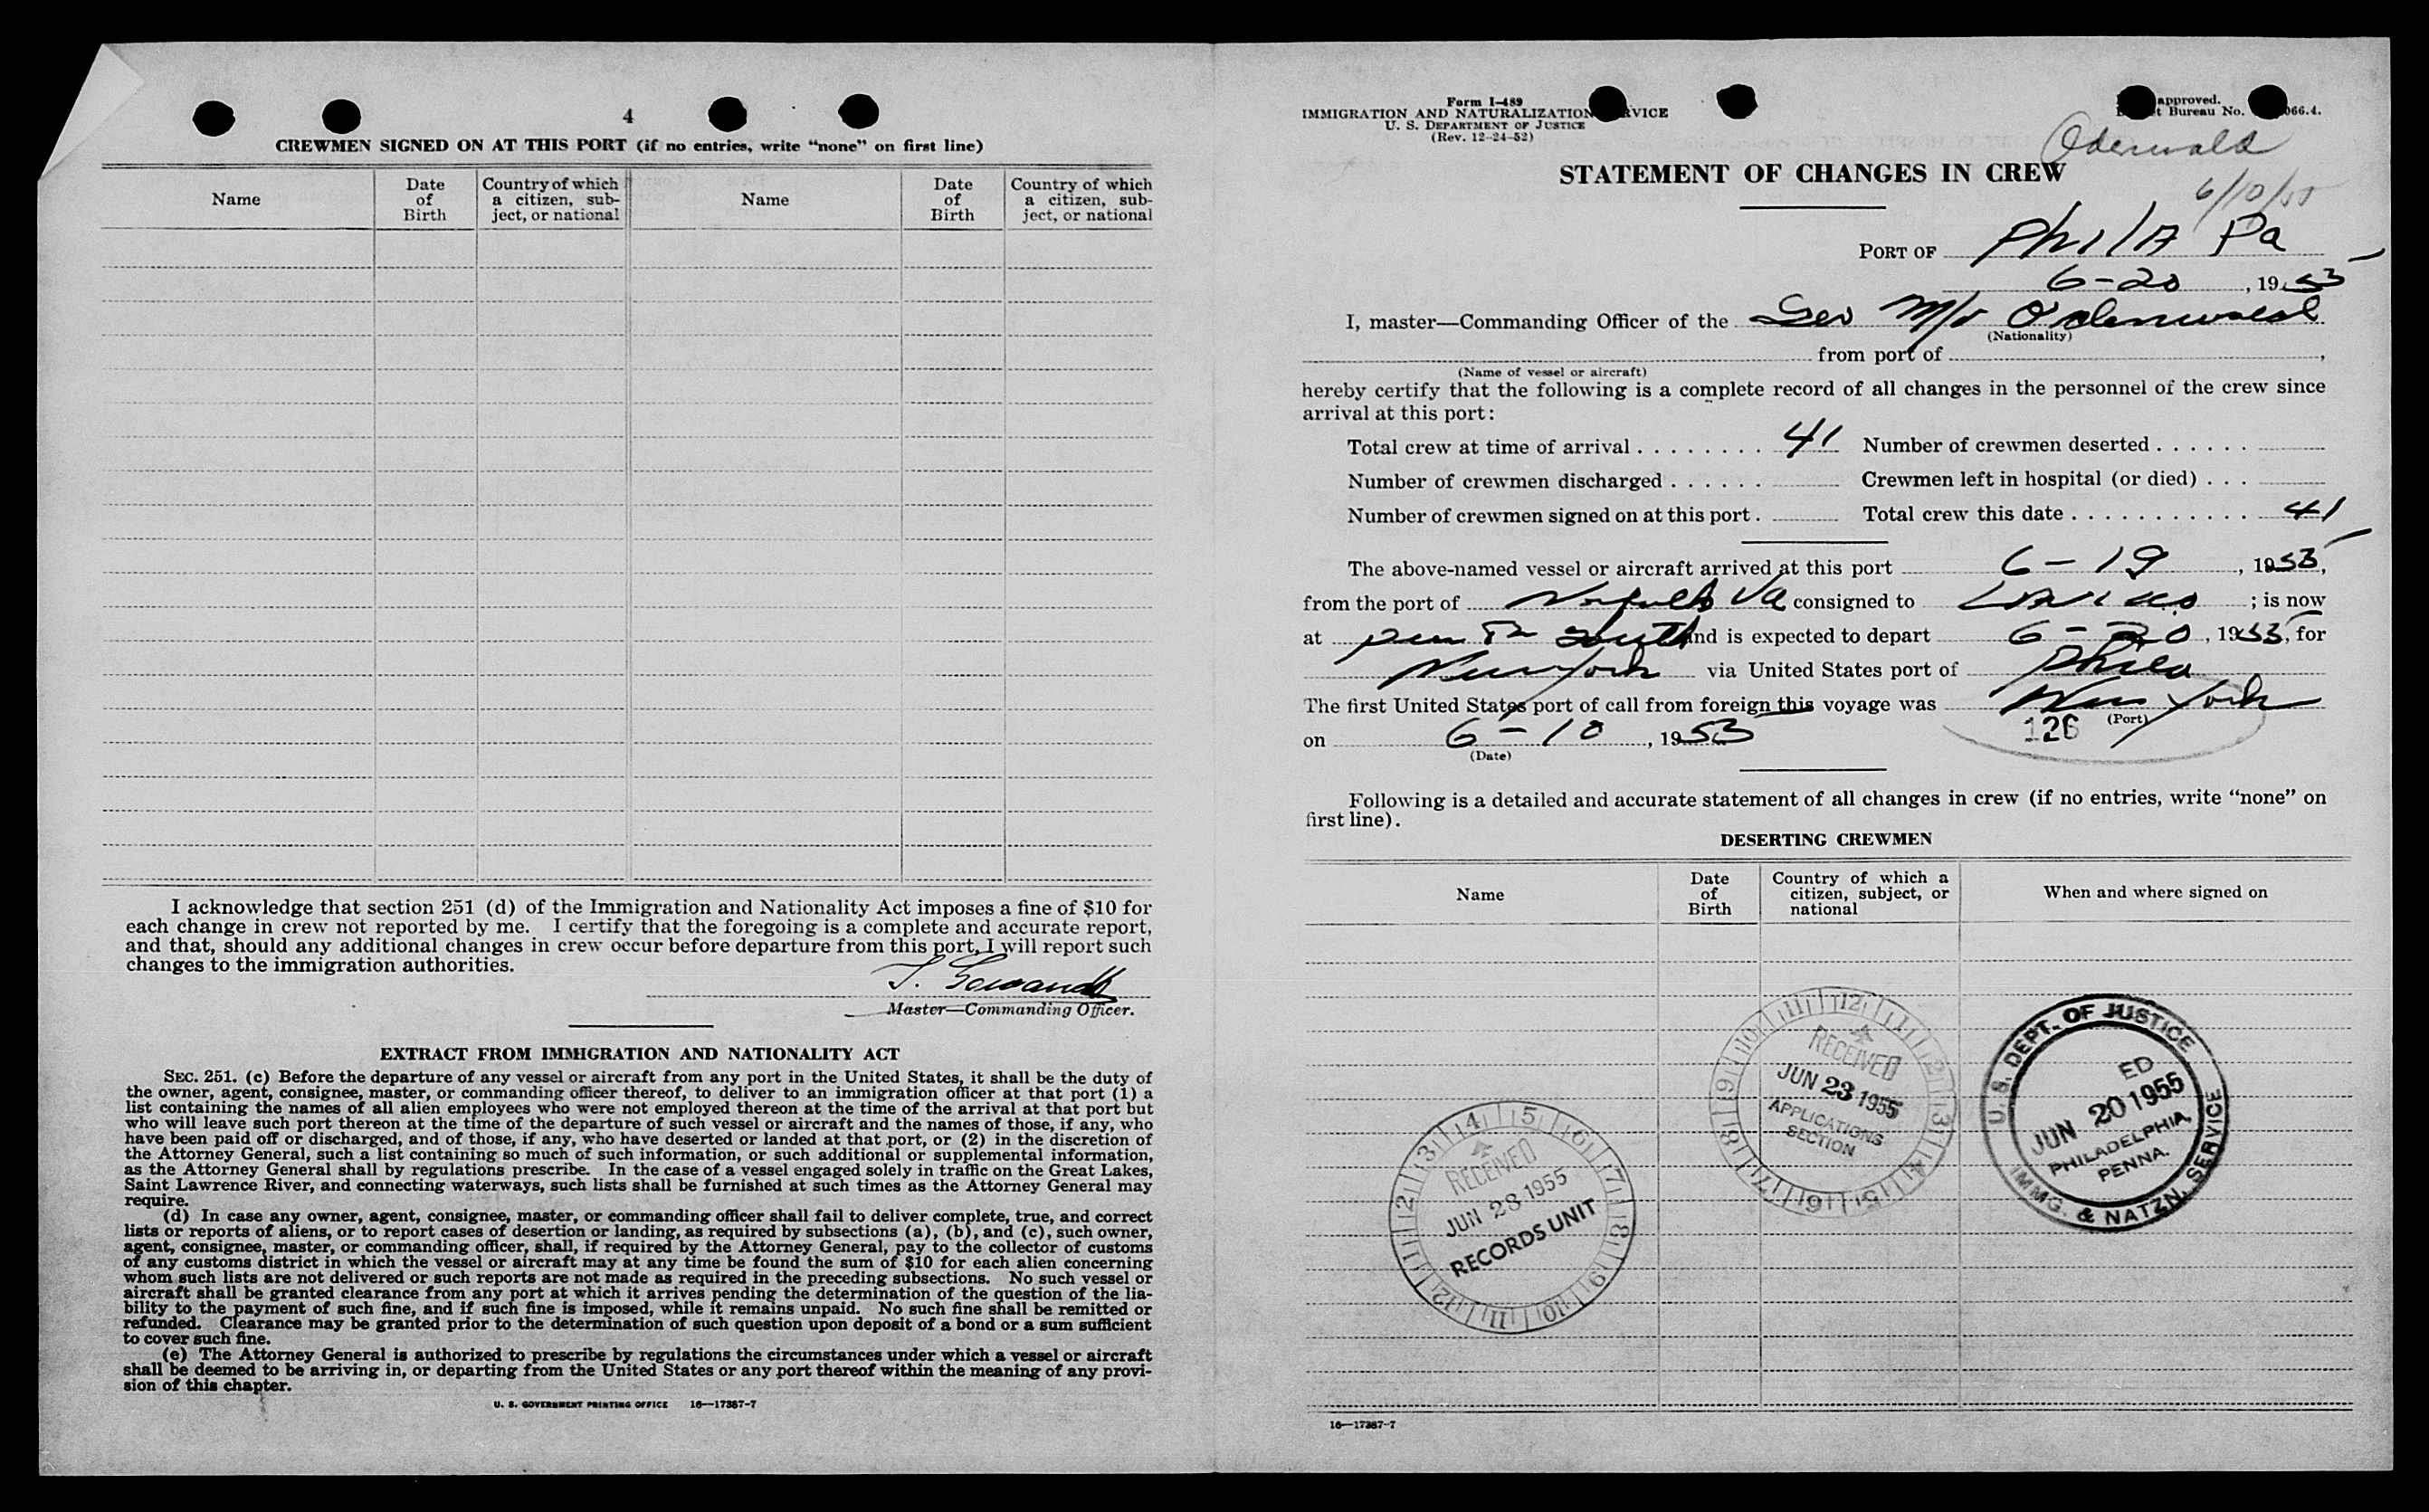 4
CREWMEN SIGNED ON AT THIS PORT (if no entries, write “none” on first line)
Name
Date of Birth
Country of which a citizen, sub-ject, or national
Name
Date of Birth
Country of which a citizen, sub-ject, or national
I acknowledge that section 251 (d) of the Immigration and Nationality Act imposes a fine of $10 for
each change in crew not reported by me. I certify that the foregoing is a complete and accurate report,
and that, should any additional changes in crew occur before departure from this port, I will report such
changes to the immigration authorities.
Master—Commanding Officer.
EXTRACT FROM IMMIGRATION AND NATIONALITY ACT
SEC. 251. (c) Before the departure of any vessel or aircraft from any port in the United States, it shall be the duty of
the owner, agent, consignee, master, or commanding officer thereof, to deliver to an immigration officer at that port (1) a
list containing the names of all alien employees who were not employed thereon at the time of the arrival at that port but
who will leave such port thereon at the time of the departure of such vessel or aircraft and the names of those, if any, who
have been paid off or discharged, and of those, if any, who have deserted or landed at that port, or (2) in the discretion of
the Attorney General, such a list containing so much of such information, or such additional or supplemental information,
as the Attorney General shall by regulations prescribe. In the case of a vessel engaged solely in traffic on the Great Lakes,
Saint Lawrence River, and connecting waterways, such lists shall be furnished at such times as the Attorney General may
require.
(d) In case any owner, agent, consignee, master, or commanding officer shall fail to deliver complete, true, and correct
lists or reports of aliens, or to report cases of desertion or landing, as required by subsections (a), (b), and (c), such owner,
agent, consignee, master, or commanding officer, shall, if required by the Attorney General, pay to the collector of customs
of any customs district in which the vessel or aircraft may at any time be found the sum of $10 for each alien concerning
whom such lists are not delivered or such reports are not made as required in the preceding subsections. No such vessel or
aircraft shall be granted clearance from any port at which it arrives pending the determination of the question of the lia-
bility to the payment of such fine, and if such fine is imposed, while it remains unpaid. No such fine shall be remitted or
refunded. Clearance may be granted prior to the determination of such question upon deposit of a bond or a sum sufficient
to cover such fine.
(e) The Attorney General is authorized to prescribe by regulations the circumstances under which a vessel or aircraft
shall be deemed to be arriving in, or departing from the United States or any port thereof within the meaning of any provi-
sion of this chapter.
U. S. GOVERNMENT PRINTING OFFICE 16—17387-7
Form I-489
IMMIGRATION AND NATURALIZATION RVICE
U. S. DEPARTMENT OF JUSTICE
(Rev. 12-24-52)
approved.
t Bureau No. 066.4.
Odenwald
6/10/55
STATEMENT OF CHANGES IN CREW
PORT OF Phila Pa
6-20, 1955
I, master—Commanding Officer of the Ger M/v Odenwald
(Nationality)
from port of ,
(Name of vessel or aircraft)
hereby certify that the following is a complete record of all changes in the personnel of the crew since
arrival at this port:
Total crew at time of arrival . . . . . . . . 41 Number of crewmen deserted . . . . . .
Number of crewmen discharged . . . . . . Crewmen left in hospital (or died) . . .
Number of crewmen signed on at this port . Total crew this date . . . . . . . . . . . . 41
The above-named vessel or aircraft arrived at this port 6-19, 1955,
from the port of Norfolk Va consigned to Lavino ; is now
at pier 82 South and is expected to depart 6-20, 1955, for
New York via United States port of Phila
The first United States port of call from foreign this voyage was New York
(Port)
126
on 6-10, 1955
(Date)
Following is a detailed and accurate statement of all changes in crew (if no entries, write “none” on
first line).
DESERTING CREWMEN
Name
Date of Birth
Country of which a citizen, subject, or national
When and where signed on
RECEIVED
JUN 23 1955
APPLICATIONS
SECTION
U. S. DEPT. OF JUSTICE
ED
JUN 20 1955
PHILADELPHIA,
PENNA.
IMMG. & NATZN. SERVICE
RECEIVED
JUN 23 1955
RECORDS UNIT
16—17387-7